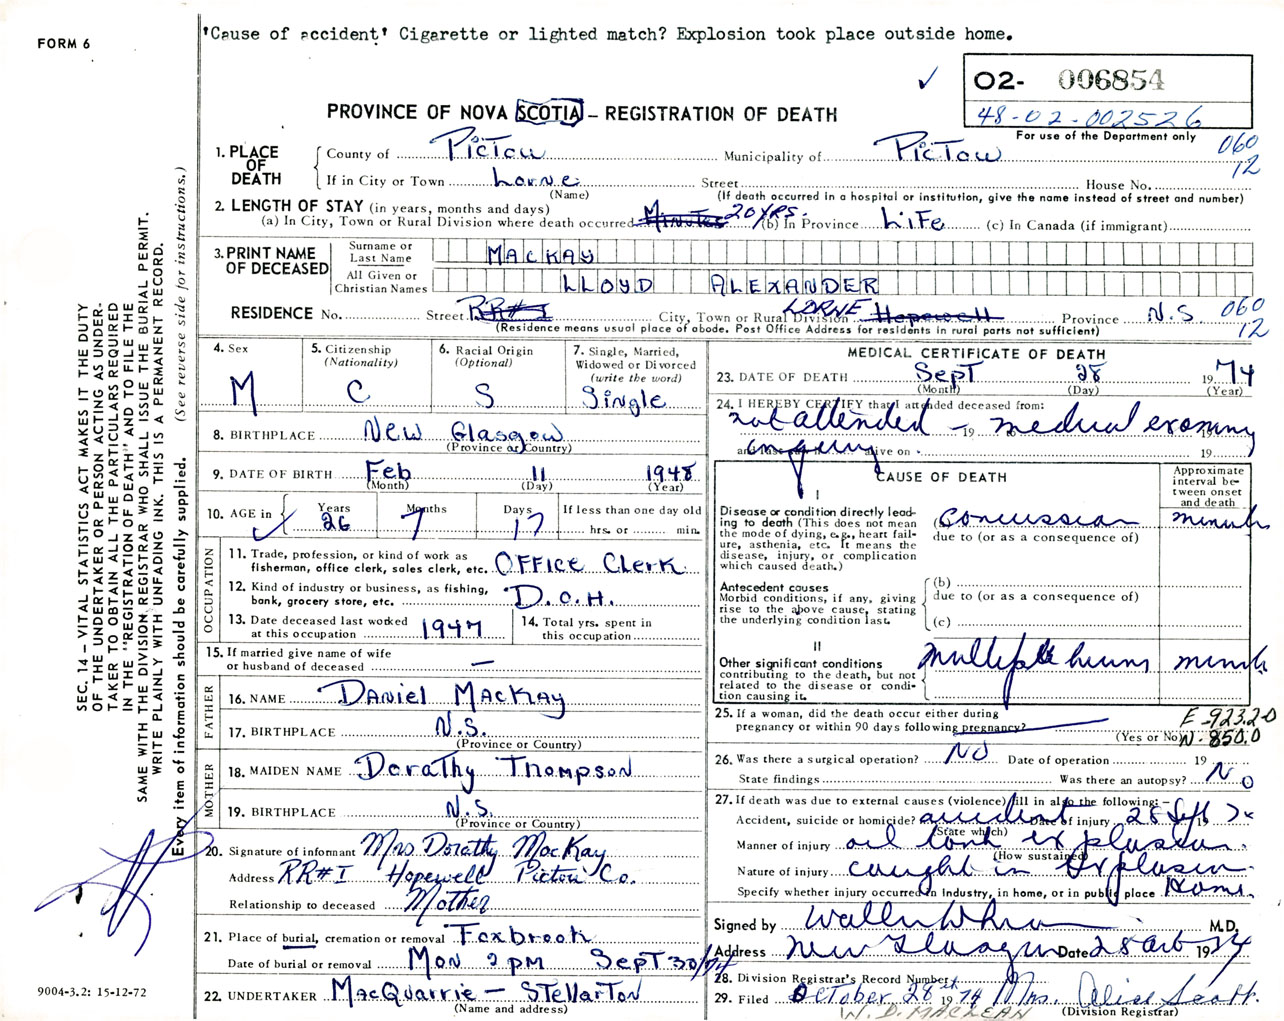 FORM 6
'Cause of accident' Cigarette or lighted match? Explosion took place outside home.
O2- 006854
48-02-002526
For use of the Department only
PROVINCE OF NOVA SCOTIA – REGISTRATION OF DEATH
060
12
1. PLACE OF DEATH
County of Pictou Municipality of Pictou
If in City or Town Lorne Street House No.
(Name) (If death occurred in a hospital or institution, give the name instead of street and number)
2. LENGTH OF STAY (in years, months and days)
(a) In City, Town or Rural Division where death occurred Minutes 20 YRS. (b) In Province Life (c) In Canada (if immigrant)
3. PRINT NAME OF DECEASED
Surname or Last Name MACKAY
All Given or Christian Names LLOYD ALEXANDER
RESIDENCE No. Street RR#1 City, Town or Rural Division LORNE Hopewell Province N.S 060
12
(Residence means usual place of abode. Post Office Address for residents in rural parts not sufficient)
4. Sex M
5. Citizenship (Nationality) C
6. Racial Origin (Optional) S
7. Single, Married, Widowed or Divorced (write the word) Single
8. BIRTHPLACE New Glasgow
(Province or Country)
9. DATE OF BIRTH Feb 11 1948
(Month) (Day) (Year)
10. AGE in Years 26 Months 7 Days 17 If less than one day old
hrs. or min.
OCCUPATION
11. Trade, profession, or kind of work as fisherman, office clerk, sales clerk, etc. OFFice Clerk
12. Kind of industry or business, as fishing, bank, grocery store, etc. D.O.H.
13. Date deceased last worked at this occupation 1947
14. Total yrs. spent in this occupation
15. If married give name of wife or husband of deceased —
FATHER
16. NAME Daniel MacKay
17. BIRTHPLACE N.S.
(Province or Country)
MOTHER
18. MAIDEN NAME Dorathy Thompson
19. BIRTHPLACE N.S.
(Province or Country)
20. Signature of informant Mrs Dorathy MacKay
Address RR#1 Hopewell Pictou Co.
Relationship to deceased Mother
21. Place of burial, cremation or removal Foxbrook
Date of burial or removal Mon 2 PM Sept 30/74
22. UNDERTAKER MacQuarrie – Stellarton
(Name and address)
MEDICAL CERTIFICATE OF DEATH
23. DATE OF DEATH Sept 28 1974
(Month) (Day) (Year)
24. I HEREBY CERTIFY that I attended deceased from:
not attended – 19 to medical 19
and last alive on 19
CAUSE OF DEATH
Approximate interval between onset and death
I
Disease or condition directly leading to death (This does not mean the mode of dying, e.g., heart failure, asthenia, etc. It means the disease, injury, or complication which caused death.)
(a) Concussion minutes
due to (or as a consequence of)
Antecedent causes
Morbid conditions, if any, giving rise to the above cause, stating the underlying condition last.
(b)
due to (or as a consequence of)
(c)
II
Other significant conditions contributing to the death, but not related to the disease or condition causing it.
multiple burns minutes
25. If a woman, did the death occur either during pregnancy or within 90 days following pregnancy?
(Yes or No)
E-923.2-0
N-850.0
26. Was there a surgical operation? NO Date of operation 19
State findings Was there an autopsy? No
27. If death was due to external causes (violence) fill in also the following:–
Accident, suicide or homicide? accident Date of injury 28 Sept 74
(State which)
Manner of injury oil tank explosion
(How sustained)
Nature of injury caught in explosion
Specify whether injury occurred in industry, in home, or in public place Home.
Signed by M.D.
Address New Glasgow Date 28 Oct 1974
28. Division Registrar's Record Number
29. Filed October 28th 1974 Mrs. Alice Scott.
W. D. MACLEAN (Division Registrar)
SEC. 14 – VITAL STATISTICS ACT MAKES IT THE DUTY
OF THE UNDERTAKER OR PERSON ACTING AS UNDER-
TAKER TO OBTAIN ALL THE PARTICULARS REQUIRED
IN THE "REGISTRATION OF DEATH" AND TO FILE THE
SAME WITH THE DIVISION REGISTRAR WHO SHALL ISSUE THE BURIAL PERMIT.
WRITE PLAINLY WITH UNFADING INK. THIS IS A PERMANENT RECORD.
Every item of information should be carefully supplied. (See reverse side for instructions.)
9004-3.2: 15-12-72